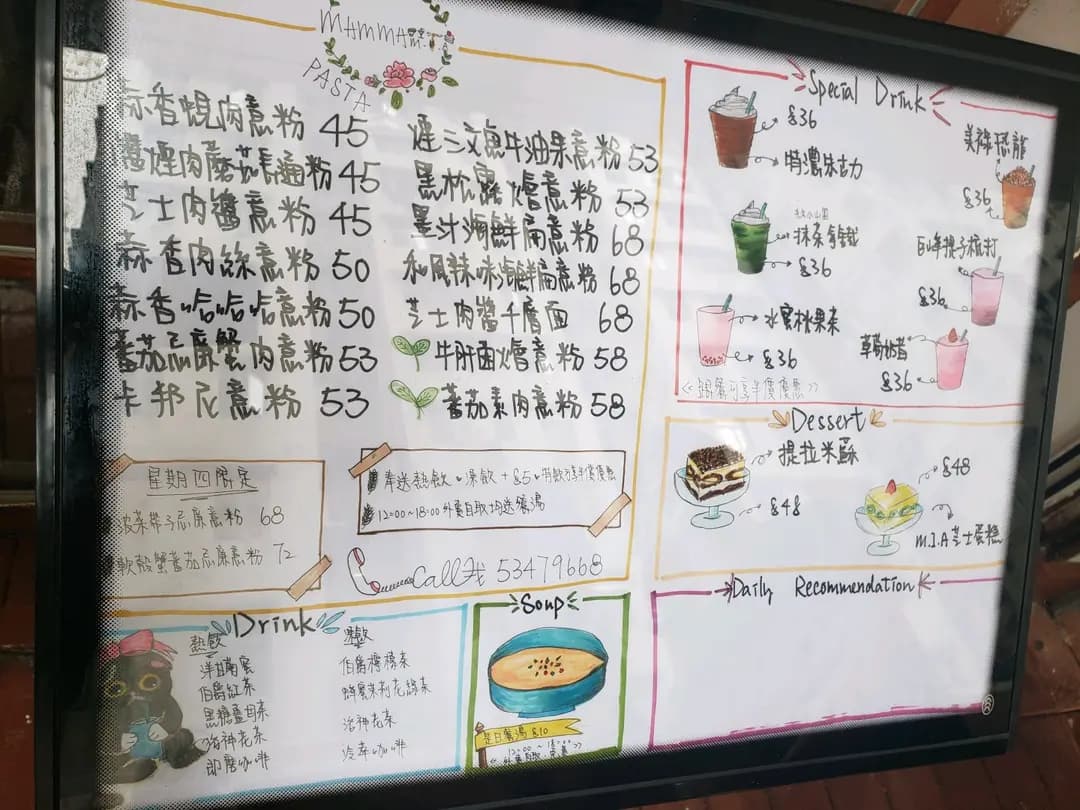 MAMMA
PASTA
蒜香蜆肉意粉 45
煙肉蘑菇長通粉 45
芝士肉醬意粉 45
蒜香肉絲意粉 50
蒜香哈哈哈意粉 50
蕃茄忌廉蟹肉意粉 53
卡邦尼意粉 53
煙三文魚牛油果意粉 53
黑松露燴意粉 53
墨汁海鮮扁意粉 68
和風辣味海鮮扁意粉 68
芝士肉醬千層面 68
牛肝菌燴意粉 58
蕃茄素肉意粉 58
星期四限定
菠菜帶子忌廉意粉 68
軟殼蟹蕃茄忌廉意粉 72
單送熱飲、凍飲+$5、特飲可享半價優惠
12:00~18:00外賣自取均送餐湯
Call我 53479668
Special Drink
$36
特濃朱古力
抹茶拿鐵
$36
水蜜桃果茶
$36
美祿恐龍
$36
巨峰提子梳打
$36
草莓奶昔
$36
《跟餐可享半價優惠》
Dessert
提拉米蘇
$48
$48
M.I.A芝士蛋糕
Daily Recommendation
Drink
熱飲
洋甘菊蜜
伯爵紅茶
黑糖薑母茶
洛神花茶
即磨咖啡
凍飲
伯爵檸檬茶
蜂蜜茉莉花綠茶
洛神花茶
冷萃咖啡
Soup
是日餐湯 $10
12:00~18:00